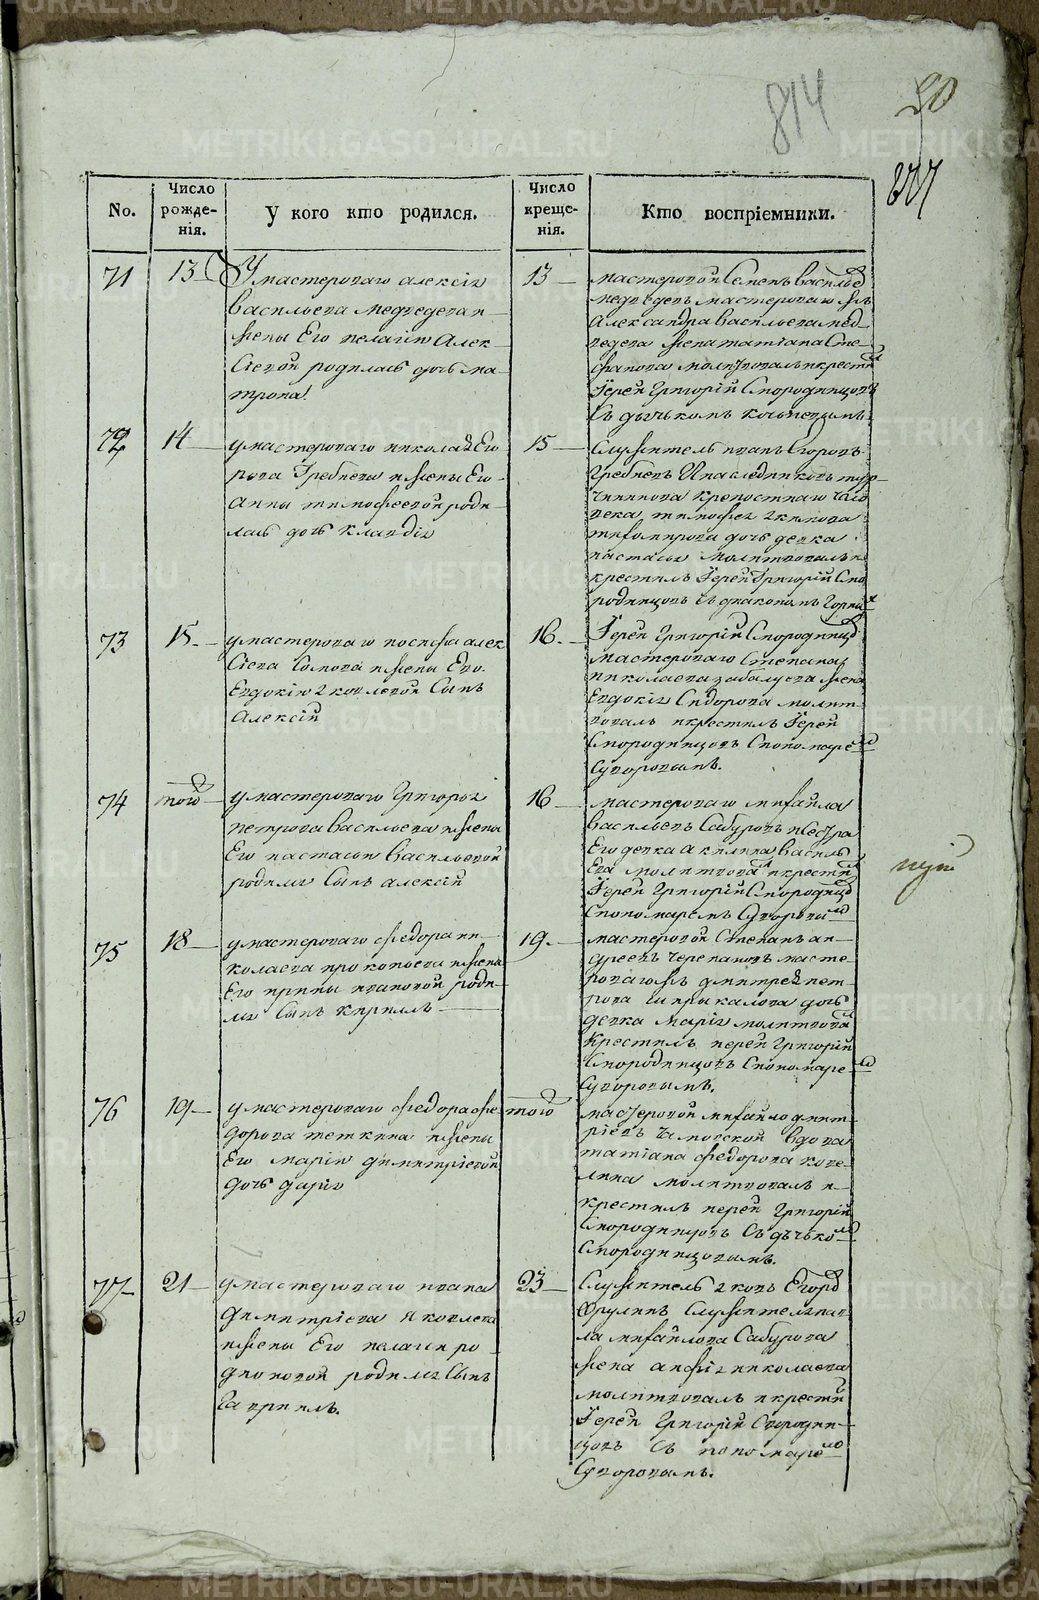 814
50
No.
Число рожде- нія.
У кого кто родился.
Число креще- нія.
Кто воспріемники.
71
13
У мастероваго алексiя
васильева медведева и
жены Его пелагiи Алек
Сiевой родилась дочь ма
трона
13
мастеровой Семенъ василье
медведевъ мастероваго жъ
Александра васильева мед
ведева жена татiана Сте
фанова молитвовалъ и крести
Iерей Григорiй Смородинцовъ
Съ дьячькомъ
72
14
у мастероваго николая Его
рова Гребнева и жены Его
анны тимофеевой роди
лась дочь клавдiя
15
Служитель иванъ Егоровъ
Гребневъ И наследниковъ тур
чининова крепостнаго чело
века тимофея
дочь девка
настасья молитвовалъ и
крестилъ Iерей Григорiй Смо
родинцовъ Съ диакономъ
73
15
у мастероваго иосифа алек
Сiева Сомова и жены Его
Евдокiи Яковлевой Сынъ
Алексiй
16
Iерей Григорiй Смородинцо
мастероваго Степана
николаева жена
Евдокiя Сидорова молит
вовалъ и крестилъ Iерей
Смородинцовъ Спономаре
Суворовымъ.
74
того
у мастероваго Григорья
петрова васильева и жены
Его настасьи васильевой
родился Сынъ алексiй
16
мастероваго михайла
васильевъ Сабуровъ и Сестра
Его девка акилина василь
Ева молитвова и крести
Iерей Григорiй Смородинцо
Спономаремъ Суворовы
75
18
у мастероваго федора ни
колаева прокопьева и жены
Его ирины ивановой роди
лся Сынъ кириллъ
19
мастеровой Степанъ ан
дреевъ черепановъ масте
роваго жъ дмитрея пет
рова ширыкалова дочь
девка Марiя молитвова
Крестилъ иерей Григорiй
Смородинцовъ Спономаре
Суворовымъ.
76
19
у мастероваго федора фе
дорова теткина и жены
Его марiи димитрiевой
дочь дарiя
того
мастеровой михайло дмит
рiевъ вдова
татiана федорова
молитвовалъ и
крестилъ иерей Григорiй
Смородинцовъ Съ дьячько
Смородинцовымъ.
77
21
у мастероваго ивана
Димитрiева Яковлева
и жены Его пелагеи ро
дионовой родился Сынъ
Гавриилъ.
23
Служитель Яковъ Егоро
Фрулинъ Служителя пав
ла михайлова Сабурова
жена анфия николаева
молитвовалъ и крести
Iерей Григорiй Смородин
цовъ Съ пономаре
Суворовымъ.
METRIKI.GASO-URAL.RU